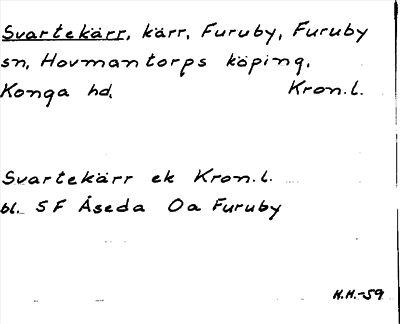 Svartekärr, kärr, Furuby, Furuby
sn, Hovmantorps köping,
Konga hd. Kron.l.
Svartekärr ek Kron.l.
bl. SF Åseda Oa Furuby
H.H.-59